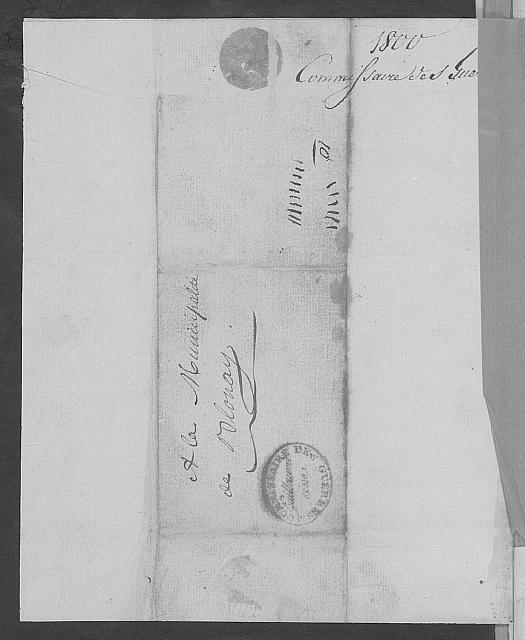 1800
Commissaire des Gue
A la Municipalité
de Blonay.
COMMISSAIRE DES GUERRES